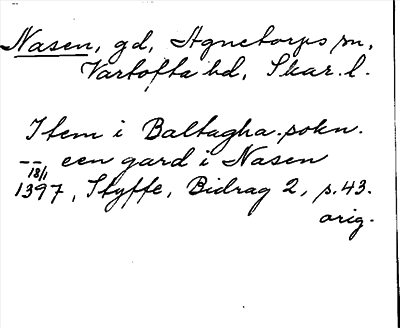 Nasen, gd, Agnetorps sn,
Vartofta hd, Skar. l.
Item i Baltagha sokn.
-- een gard i Nasen
18/1
1397, Styffe, Bidrag 2, s. 43.
orig.